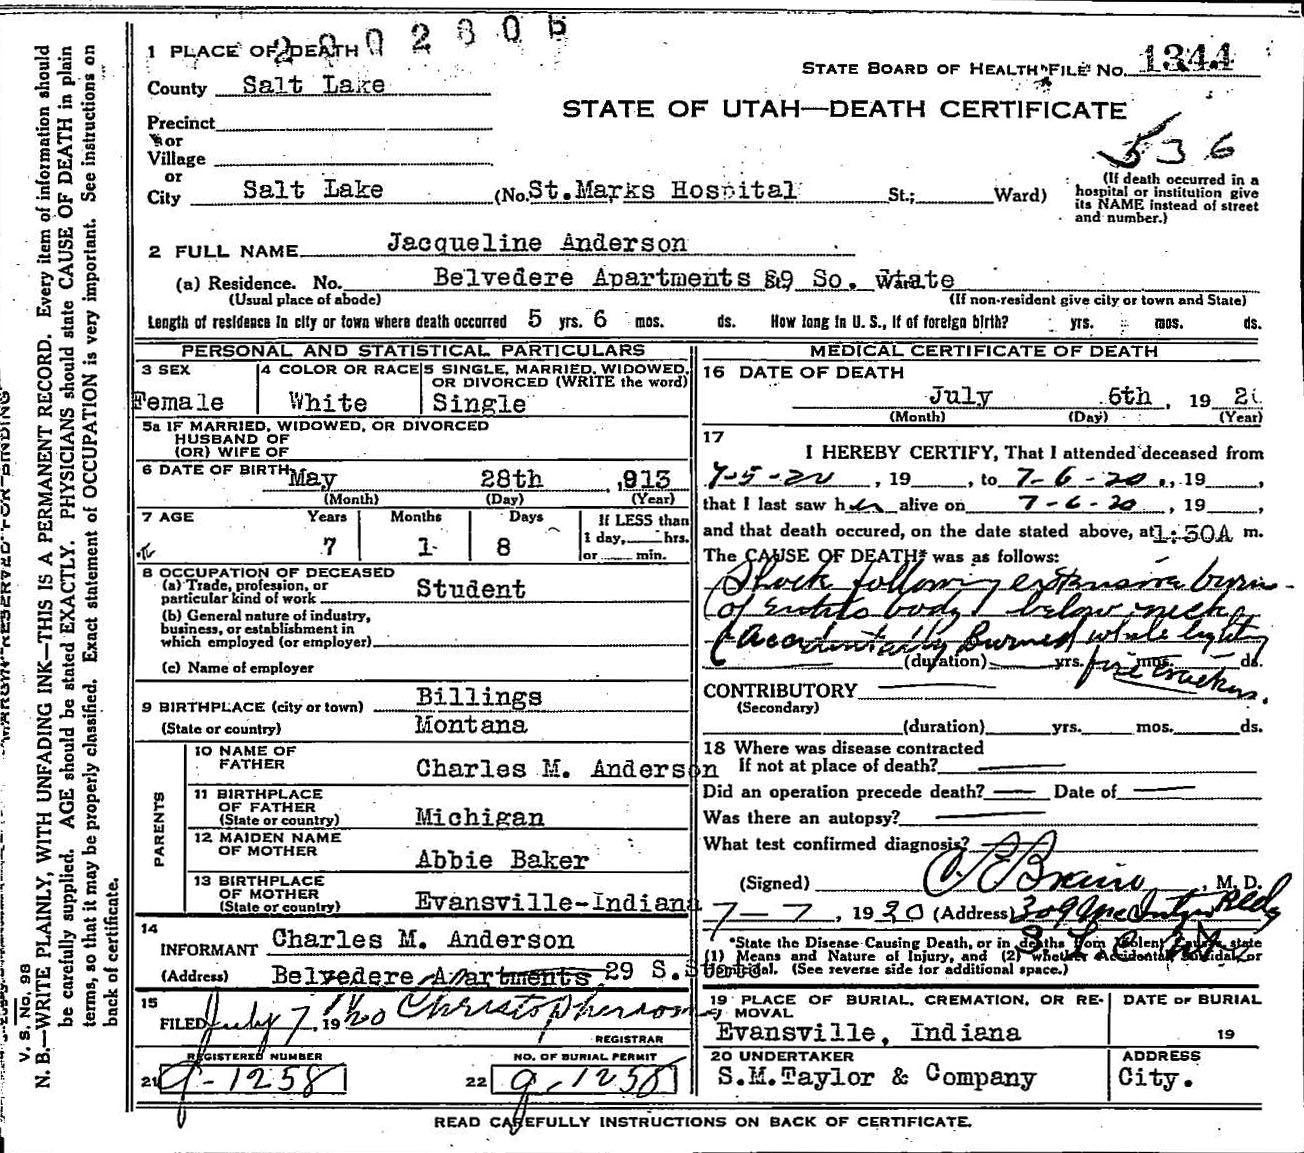 2002606
1 PLACE OF DEATH
STATE BOARD OF HEALTH FILE No. 1344
County Salt Lake
STATE OF UTAH—DEATH CERTIFICATE
Precinct
or
Village
536
or
City Salt Lake (No. St.Marks Hospital St.; Ward)
(If death occurred in a hospital or institution give its NAME instead of street and number.)
2 FULL NAME Jacqueline Anderson
(a) Residence. No. Belvedere Apartments 29 So. State
(Usual place of abode) (If non-resident give city or town and State)
Length of residence in city or town where death occurred 5 yrs. 6 mos. ds. How long in U. S., if of foreign birth? yrs. mos. ds.
PERSONAL AND STATISTICAL PARTICULARS
3 SEX
Female
4 COLOR OR RACE
White
5 SINGLE, MARRIED, WIDOWED,
OR DIVORCED (WRITE the word)
Single
5a IF MARRIED, WIDOWED, OR DIVORCED
HUSBAND OF
(OR) WIFE OF
6 DATE OF BIRTH May 28th , 913
(Month) (Day) (Year)
7 AGE Years Months Days If LESS than
1 day, hrs.
7 1 8 or min.
8 OCCUPATION OF DECEASED
(a) Trade, profession, or
particular kind of work Student
(b) General nature of industry,
business, or establishment in
which employed (or employer)
(c) Name of employer
9 BIRTHPLACE (city or town) Billings
(State or country) Montana
PARENTS
10 NAME OF
FATHER Charles M. Anderson
11 BIRTHPLACE
OF FATHER
(State or country) Michigan
12 MAIDEN NAME
OF MOTHER Abbie Baker
13 BIRTHPLACE
OF MOTHER
(State or country) Evansville-Indiana
14
INFORMANT Charles M. Anderson
(Address) Belvedere Apartments 29 S.State
15
FILED July 7, 1920 Christopherson
REGISTRAR
REGISTERED NUMBER
21 9-1258
NO. OF BURIAL PERMIT
22 9-1258
MEDICAL CERTIFICATE OF DEATH
16 DATE OF DEATH
July 6th, 19 20
(Month) (Day) (Year)
17
I HEREBY CERTIFY, That I attended deceased from
7-5-20, 19 , to 7-6-20, 19 ,
that I last saw her alive on 7-6-20, 19 ,
and that death occured, on the date stated above, at 1:30A m.
The CAUSE OF DEATH* was as follows:
Shock following extensive burn
of entire body below neck
(Accidentally Burned while lighting
fire crackers.
(duration) yrs. mos. ds.
CONTRIBUTORY
(Secondary)
(duration) yrs. mos. ds.
18 Where was disease contracted
If not at place of death?
Did an operation precede death? Date of
Was there an autopsy?
What test confirmed diagnosis?
(Signed) , M. D.
7-7, 1920 (Address) 309 McIntyre Bldg
*State the Disease Causing Death, or in deaths from Violent Causes, state
(1) Means and Nature of Injury, and (2) whether Accidental, Suicidal, or
Homicidal. (See reverse side for additional space.)
19 PLACE OF BURIAL, CREMATION, OR RE-
MOVAL
Evansville, Indiana
DATE OF BURIAL
19
20 UNDERTAKER
S.M.Taylor & Company
ADDRESS
City.
READ CAREFULLY INSTRUCTIONS ON BACK OF CERTIFICATE.
MARGIN RESERVED FOR BINDING
V. S. No. 98
N. B.—WRITE PLAINLY, WITH UNFADING INK—THIS IS A PERMANENT RECORD. Every item of information should
be carefully supplied. AGE should be stated EXACTLY. PHYSICIANS should state CAUSE OF DEATH in plain
terms, so that it may be properly classified. Exact statement of OCCUPATION is very important. See instructions on
back of certificate.